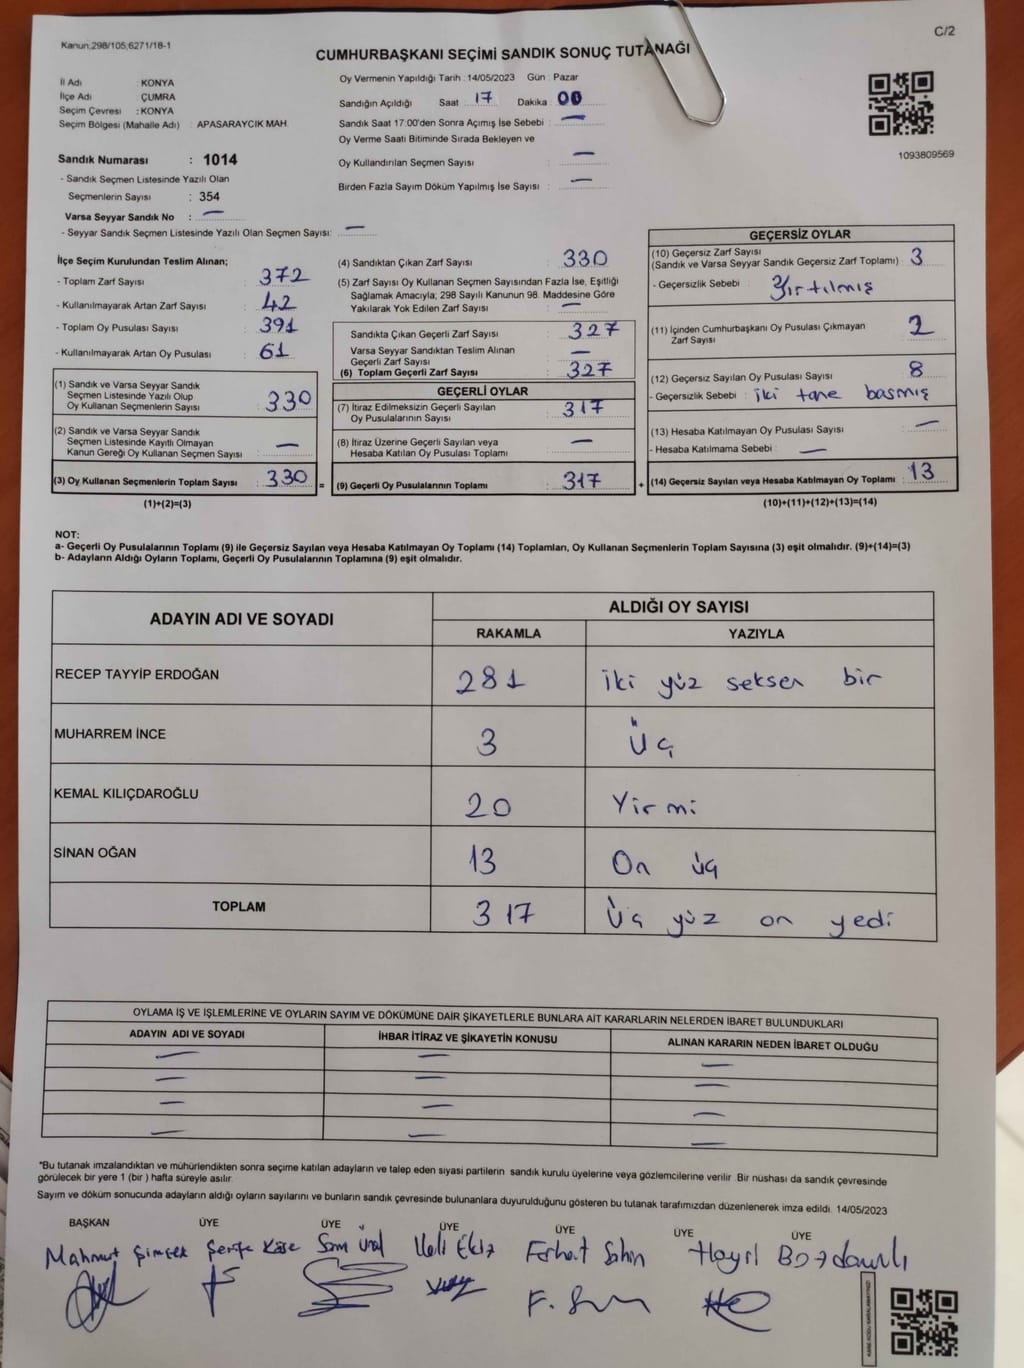 Kanun:298/105;6271/18-1
C/2
CUMHURBAŞKANI SEÇİMİ SANDIK SONUÇ TUTANAĞI
İl Adı : KONYA
İlçe Adı : ÇUMRA
Seçim Çevresi : KONYA
Seçim Bölgesi (Mahalle Adı) : APASARAYCIK MAH.
Oy Vermenin Yapıldığı Tarih : 14/05/2023 Gün : Pazar
Sandığın Açıldığı Saat : 17 Dakika : 00
Sandık Saat 17:00'den Sonra Açımış İse Sebebi : —
Oy Verme Saati Bitiminde Sırada Bekleyen ve
Oy Kullandırılan Seçmen Sayısı : —
Birden Fazla Sayım Döküm Yapılmış İse Sayısı : —
1093809569
Sandık Numarası : 1014
- Sandık Seçmen Listesinde Yazılı Olan
Seçmenlerin Sayısı : 354
Varsa Seyyar Sandık No : —
- Seyyar Sandık Seçmen Listesinde Yazılı Olan Seçmen Sayısı: —
İlçe Seçim Kurulundan Teslim Alınan;
- Toplam Zarf Sayısı : 372
- Kullanılmayarak Artan Zarf Sayısı : 42
- Toplam Oy Pusulası Sayısı : 391
- Kullanılmayarak Artan Oy Pusulası : 61
(1) Sandık ve Varsa Seyyar Sandık
Seçmen Listesinde Yazılı Olup
Oy Kullanan Seçmenlerin Sayısı : 330
(2) Sandık ve Varsa Seyyar Sandık
Seçmen Listesinde Kayıtlı Olmayan
Kanun Gereği Oy Kullanan Seçmen Sayısı : —
(3) Oy Kullanan Seçmenlerin Toplam Sayısı : 330 =
(1)+(2)=(3)
(4) Sandıktan Çıkan Zarf Sayısı : 330
(5) Zarf Sayısı Oy Kullanan Seçmen Sayısından Fazla İse, Eşitliği
Sağlamak Amacıyla; 298 Sayılı Kanunun 98. Maddesine Göre
Yakılarak Yok Edilen Zarf Sayısı : —
Sandıkta Çıkan Geçerli Zarf Sayısı : 327
Varsa Seyyar Sandıktan Teslim Alınan
Geçerli Zarf Sayısı : —
(6) Toplam Geçerli Zarf Sayısı : 327
GEÇERLİ OYLAR
(7) İtiraz Edilmeksizin Geçerli Sayılan
Oy Pusulalarının Sayısı : 317
(8) İtiraz Üzerine Geçerli Sayılan veya
Hesaba Katılan Oy Pusulası Toplamı : —
(9) Geçerli Oy Pusulalarının Toplamı : 317 +
GEÇERSİZ OYLAR
(10) Geçersiz Zarf Sayısı
(Sandık ve Varsa Seyyar Sandık Geçersiz Zarf Toplamı) : 3
- Geçersizlik Sebebi : Yırtılmış
(11) İçinden Cumhurbaşkanı Oy Pusulası Çıkmayan
Zarf Sayısı : 2
(12) Geçersiz Sayılan Oy Pusulası Sayısı : 8
- Geçersizlik Sebebi : iki tane basmış
(13) Hesaba Katılmayan Oy Pusulası Sayısı : —
- Hesaba Katılmama Sebebi : —
(14) Geçersiz Sayılan veya Hesaba Katılmayan Oy Toplamı : 13
(10)+(11)+(12)+(13)=(14)
NOT:
a- Geçerli Oy Pusulalarının Toplamı (9) ile Geçersiz Sayılan veya Hesaba Katılmayan Oy Toplamı (14) Toplamları, Oy Kullanan Seçmenlerin Toplam Sayısına (3) eşit olmalıdır. (9)+(14)=(3)
b- Adayların Aldığı Oyların Toplamı, Geçerli Oy Pusulalarının Toplamına (9) eşit olmalıdır.
ADAYIN ADI VE SOYADI ALDIĞI OY SAYISI
RAKAMLA YAZIYLA
RECEP TAYYİP ERDOĞAN 281 iki yüz seksen bir
MUHARREM İNCE 3 Üç
KEMAL KILIÇDAROĞLU 20 Yirmi
SİNAN OĞAN 13 On üç
TOPLAM 317 Üç yüz on yedi
OYLAMA İŞ VE İŞLEMLERİNE VE OYLARIN SAYIM VE DÖKÜMÜNE DAİR ŞİKAYETLERLE BUNLARA AİT KARARLARIN NELERDEN İBARET BULUNDUKLARI
ADAYIN ADI VE SOYADI İHBAR İTİRAZ VE ŞİKAYETİN KONUSU ALINAN KARARIN NEDEN İBARET OLDUĞU
— — —
— — —
— — —
— — —
*Bu tutanak imzalandıktan ve mühürlendikten sonra seçime katılan adayların ve talep eden siyasi partilerin sandık kurulu üyelerine veya gözlemcilerine verilir. Bir nüshası da sandık çevresinde
görülecek bir yere 1 (bir ) hafta süreyle asılır.
Sayım ve döküm sonucunda adayların aldığı oyların sayılarını ve bunların sandık çevresinde bulunanlara duyurulduğunu gösteren bu tutanak tarafımızdan düzenlenerek imza edildi. 14/05/2023
BAŞKAN ÜYE ÜYE ÜYE ÜYE ÜYE ÜYE
Mahmut Şimşek Şerife Köse Ünal Veli Ekiz Ferhat Şahin Hayri Bozdamlı